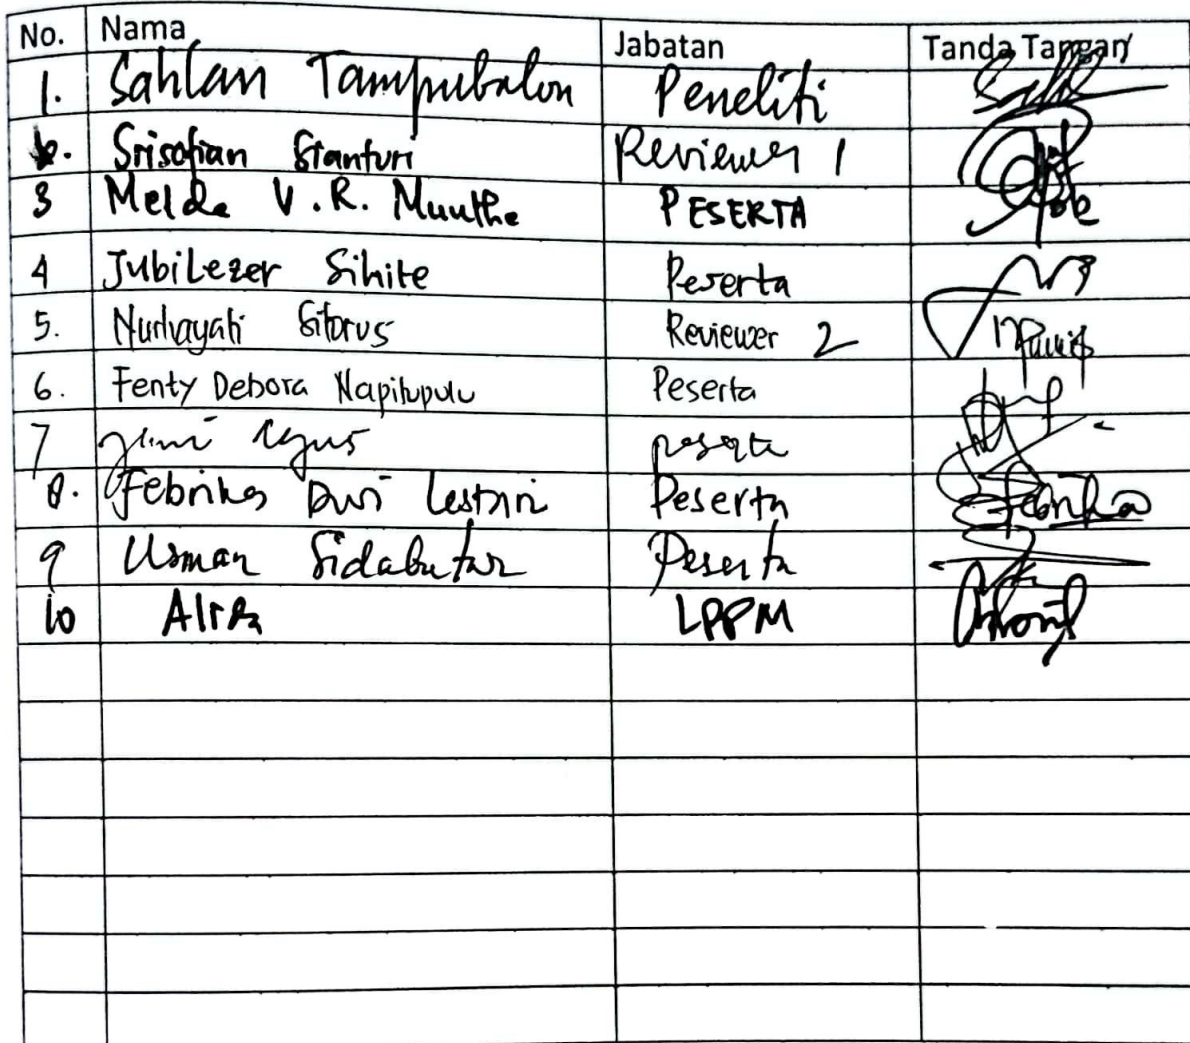 No. Nama Jabatan Tanda Tangan
1. Sahlan Tampubolon Peneliti
Srisofian Sianturi Reviewer 1
3 Melda V.R. Munthe PESERTA
4 Jubilezer Sihite Peserta
5. Nurhayati Sitorus Reviewer 2
6. Fenty Debora Napitupulu Peserta
7 peserta
8. Febrika Dwi Lestari Peserta
9 Usman Sidabutar Peserta
10 LPPM